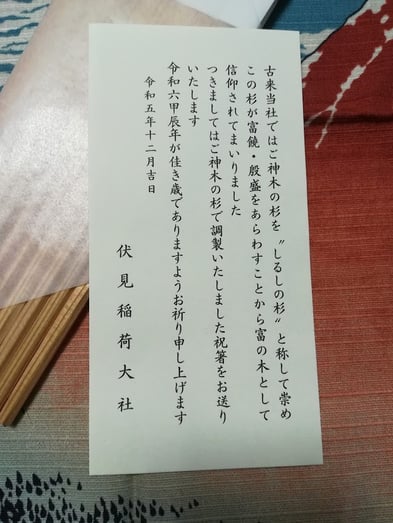 古来当社ではご神木の杉を〝しるしの杉〟と称して崇め
この杉が富饒・殷盛をあらわすことから富の木として
信仰されてまいりました
つきましてはご神木の杉で調製いたしました祝箸をお送り
いたします
令和六甲辰年が佳き歳でありますようお祈り申し上げます
令和五年十二月吉日
伏見稲荷大社